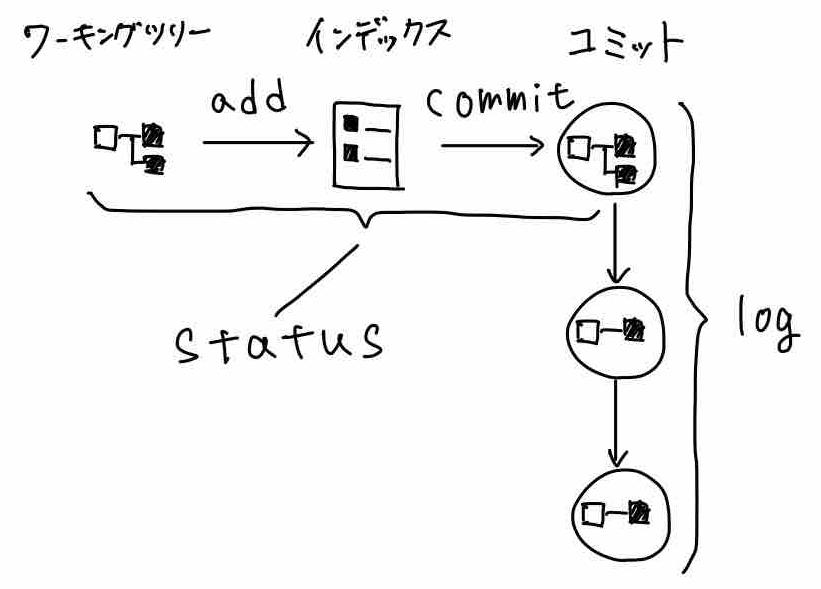 ワーキングツリー
インデックス
コミット
add
commit
status
log